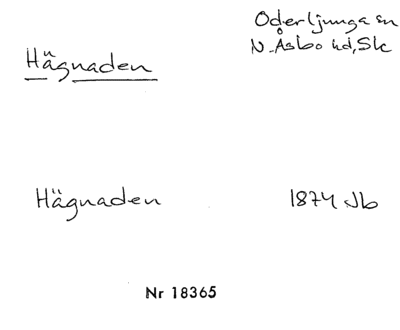 Oderljunga sn
Hägnaden
N. Åsbo hd, Sk
Hägnaden
1874 Jb
Nr 18365